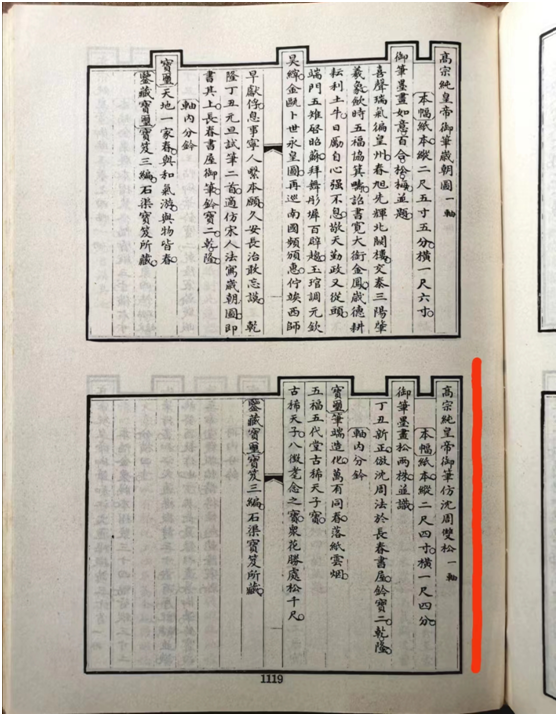 高宗純皇帝御筆歲朝圖一軸
本幅紙本縱二尺五寸五分橫一尺六寸
御筆墨畫如意百合松梅並題
喜聲瑞氣徧皇州春旭先輝北闕樓文泰三陽肇
羲象欽時五福協箕疇詔書寬大銜金鳳歲德耕
耘利土牛日勵自心強不息敬天勤政又從頭
端門五雉啓昭蘇拜舞彤墀百辟趨玉琯調元欽
昊緯金甌卜世永皇圖再巡南國頻頒惠佇竢西師
早獻俘息事寧人繄本願久安長治敢忘謨 乾
隆丁丑元旦試筆二首適仿宋人法寫歲朝圖即
書其上長春書屋御筆鈐寶二乾隆
軸內分鈐
寶璽天地一家春與和氣游與物皆春
鑒藏寶璽寶笈三編石渠寶笈所藏
高宗純皇帝御筆仿沈周雙松一軸
本幅紙本縱二尺四寸橫一尺四分
御筆墨畫松兩株並識
丁丑新正倣沈周法於長春書屋鈐寶二乾隆
軸內分鈐
寶璽筆端造化萬有同春落紙雲烟
五福五代堂古稀天子寶
古稀天子八徵耄念之寶眾花勝處松千尺
鑒藏寶璽寶笈三編石渠寶笈所藏
1119